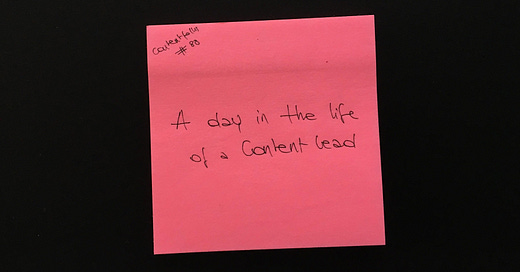 Contentfolks
# 80
A day in the life
of a Content Lead